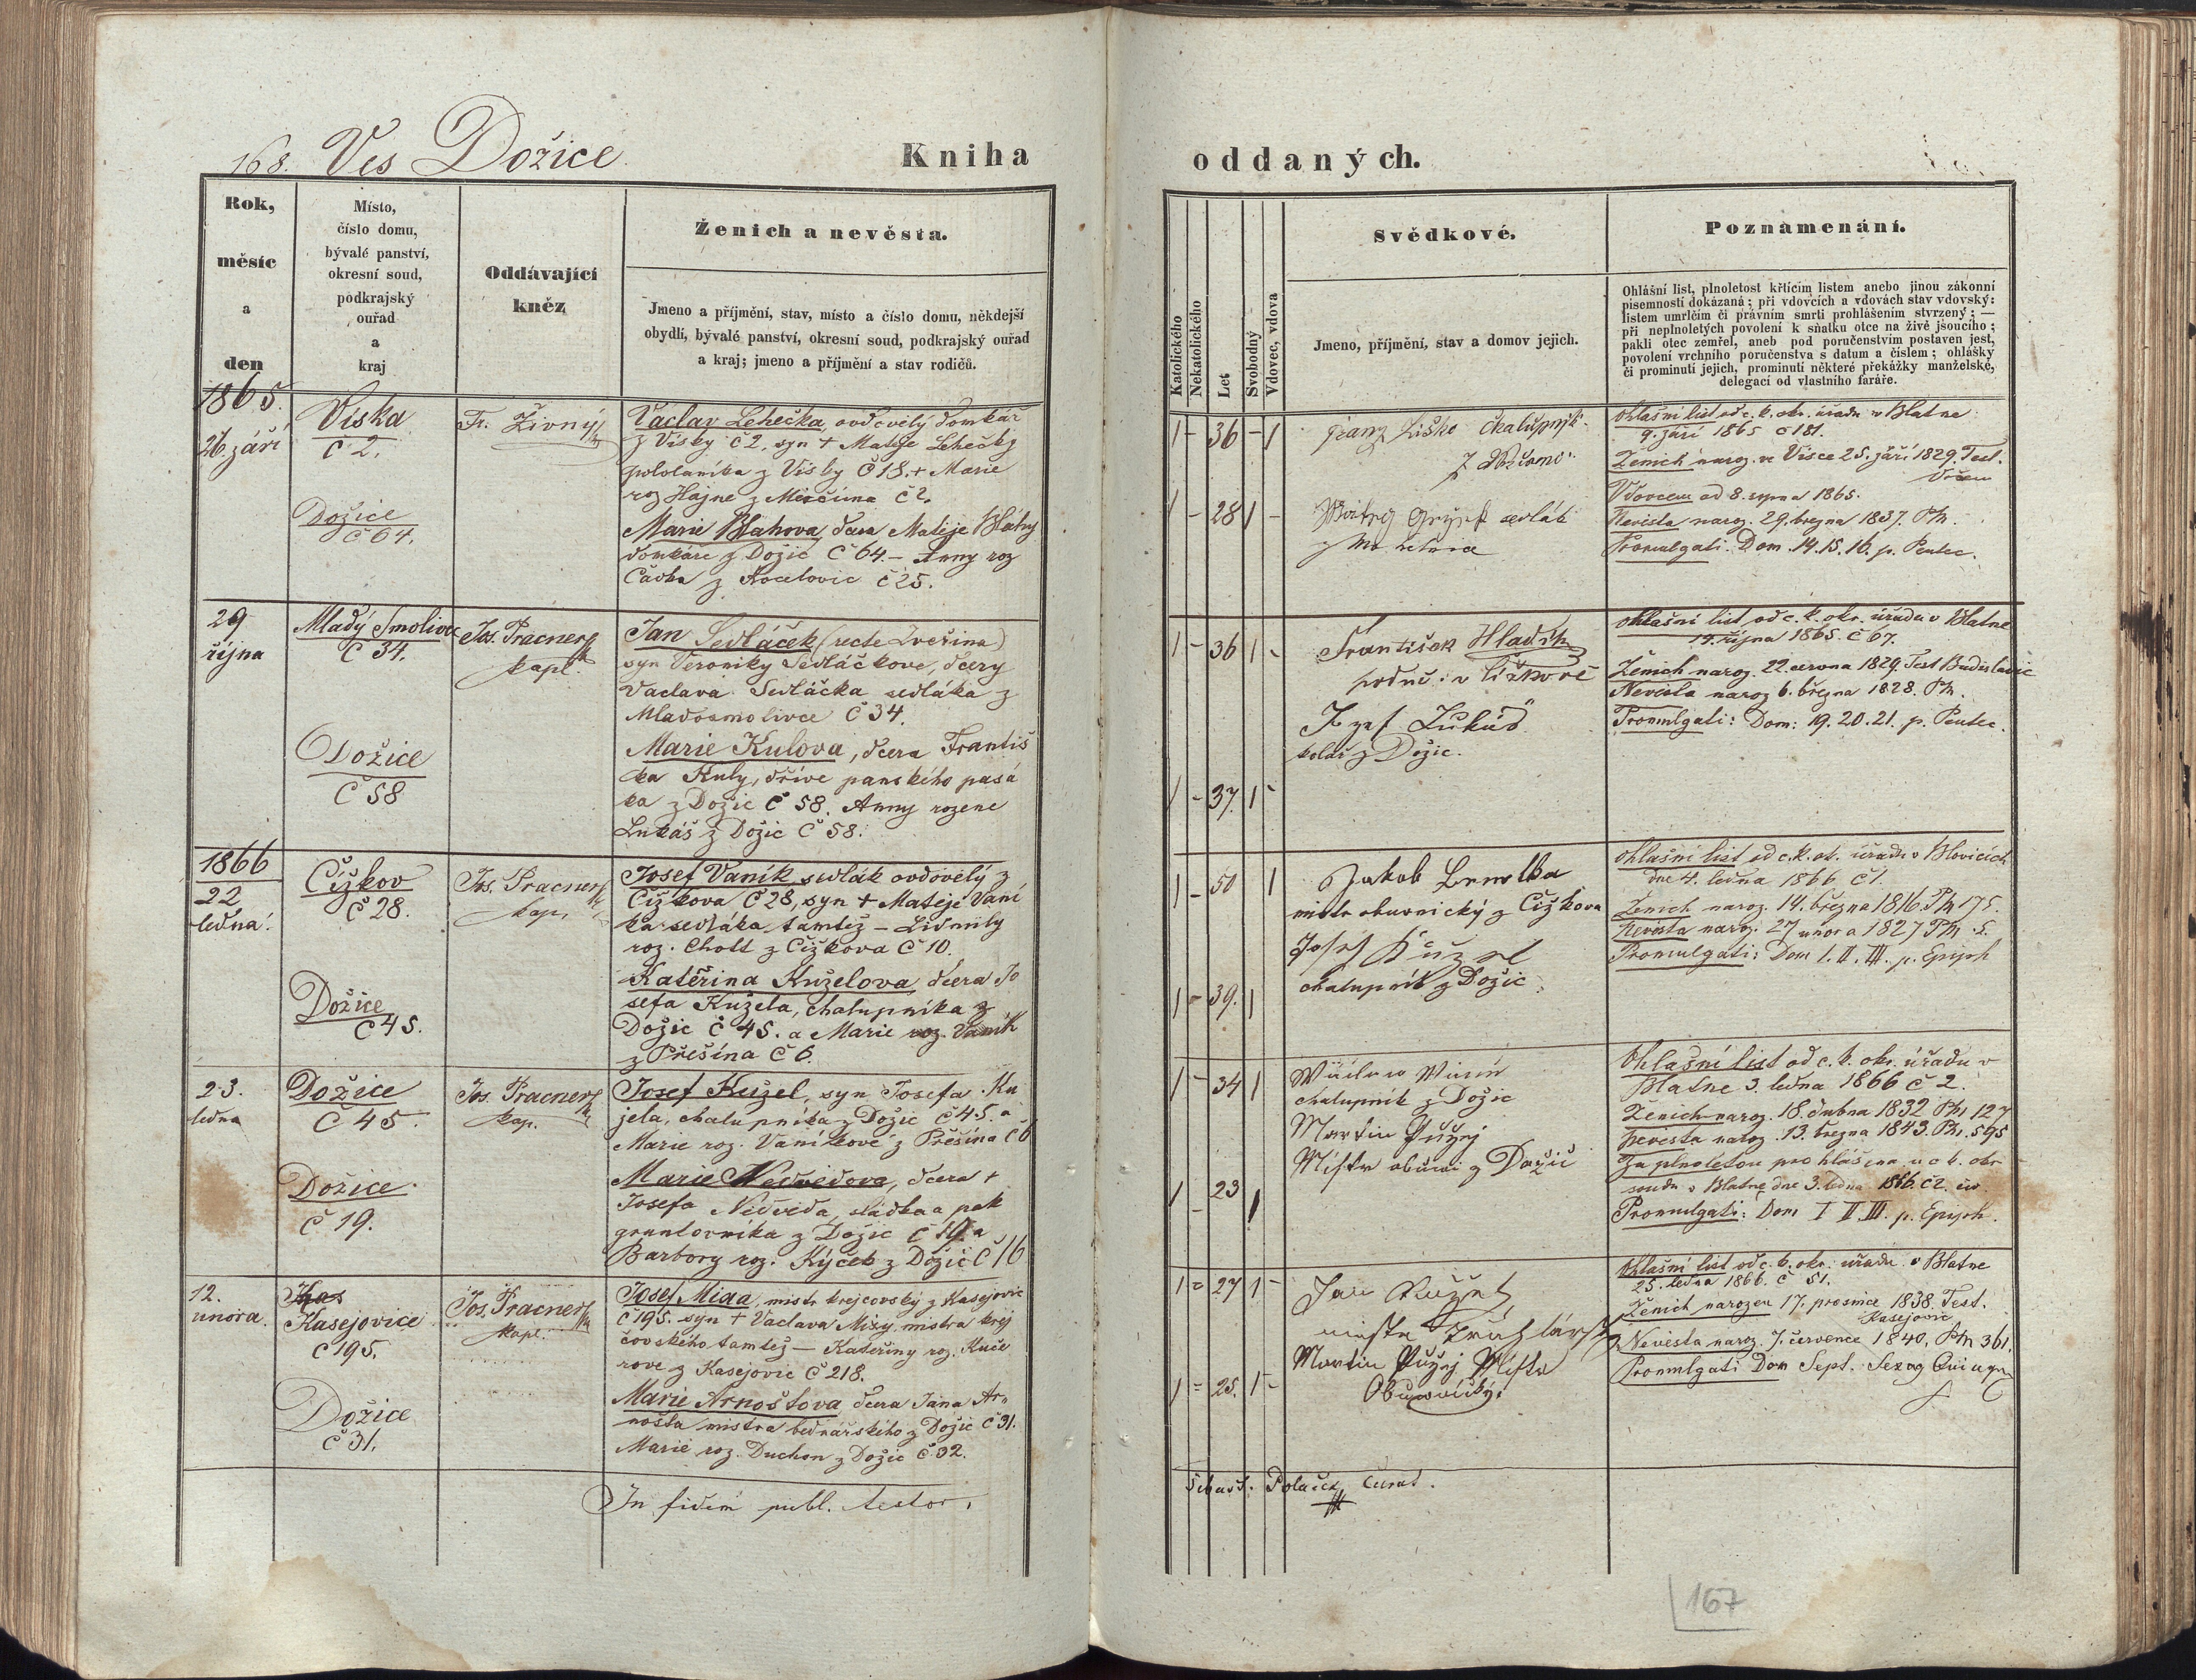 168. Ves Dožice
Kniha
Rok,
měsíc
a
den
Místo,
číslo domu,
bývalé panství,
okresní soud,
podkrajský
ouřad
a
kraj
Oddávající
kněz
Ženich a nevěsta.
Jmeno a příjmění, stav, místo a číslo domu, někdejší
obydlí, bývalé panství, okresní soud, podkrajský ouřad
a kraj; jmeno a příjmění a stav rodičů.
1865.
26. září
Víska
č 2.
Dožice
č 64.
Fr. Živný
Vaclav Lehečka, ovdovělý domkář
z Visky č 2, syn + Matěje Lehečky
pololaníka z Visky č 18. + Marie
roz Hajne z Mirčina č 2.
Marie Blahova, dcera Matěje Blahy
domkáře z Dožic č 64 – Anny roz
Cavka z Kocelovic č 25.
29
října
Mladý Smolivec
č 34.
Dožice
č 58
Jos. Pracner
kapl.
Jan Sedláček (recte Zveřina)
syn Veroniky Sedláčkove, dcery
Vaclava Sedláčka sedláka z
Mladosmolivce č 34.
Marie Kulova, dcera Františ
ka Kuly, dříve panského pasá
ka z Dožic č 58. Anny rozene
Lukáš z Dožic č 58.
1866
22
ledna.
Čížkov
č 28.
Dožice
č 45.
Jos. Pracner
kap.
Josef Vaník, sedlák ovdovělý z
Čížkova č 28, syn + Matěje Vaní
ka sedláka tamtéž – Lidmily
roz. Chott z Čížkova č 10.
Katěřina Kuželova, dcera Jo
sefa Kužela, chalupníka z
Dožic č 45. a Marie roz. Vaník
z Přešína č 6.
23.
ledna
Dožice
č 45.
Dožice
č 19.
Jos. Pracner
kap.
Josef Kužel, syn Josefa Ku
žela, chalupníka z Dožic č 45. a
Marie roz. Vaníkové z Přešína č 6
Marie Nedvědova, dcera +
Josefa Nedvěda, sládka a pak
gruntovníka z Dožic č 19. a
Barbory roz. Kýček z Dožic č 16
12.
unora.
Kas
Kasejovice
č 195.
Dožice
č 31.
Jos. Pracner
kapl.
Josef Míza, mistr krejcovský z Kasejovic
č 195. syn + Vaclava Mízy mistra krej
čovského tamtéž – Kateřiny roz. Kuče
rove z Kasejovic č 218.
Marie Arnoštova dcera Jana Ar-
nošta mistra bednářského z Dožic č 31.
Marie roz. Duchon z Dožic č 32.
In fidem publ. testor.
oddaných.
Katolického
Nekatolického
Let
Svobodný
Vdovec, vdova
Svědkové.
Jmeno, příjmění, stav a domov jejich.
Poznamenání.
Ohlášní list, plnoletost křtícím listem anebo jinou zákonní
písemností dokázaná; při vdovcích a vdovách stav vdovský:
listem umrlčím či právním smrti prohlášením stvrzený; —
při neplnoletých povolení k sňatku otce na živě jsoucího;
pakli otec zemřel, aneb pod poručenstvím postaven jest,
povolení vrchního poručenstva s datum a číslem; ohlášky
či prominutí jejich, prominutí některé překážky manželské,
delegací od vlastního faráře.
1 – 36 – 1
1 – 28 1 –
Franz Liška Chalupnik
sedlák
Ohlašní list od c. k. okr. úřadu v Blatne
9. září 1865 č 181.
Ženich naroz. ve Visce 25. září 1829. Test.
Vdovcem od 8. srpna 1865.
Nevěsta naroz. 29. března 1837. Ph.
Promulgati. Dom. 14. 15. 16. p. Pentec.
1 – 36 1 –
1 – 37. 1 –
František Hladík
Jozef Lukáš
kolář z Dožic.
Ohlašní list od c. k. okr. úřadu v Blatne
19. října 1865. č 67.
Ženich naroz. 22. cervna 1829. Test Budislavic
Nevěsta naroz 6. března 1828. Ph.
Promulgati: Dom: 19. 20. 21. p. Pentec.
1 – 50 1
1 – 39. 1
Jakob
mistr obuvnický z Čížkova
Josef Kužel
chalupník z Dožic
Ohlašní list od c. k. ok. úřadu v Blovicích
dne 4. ledna 1866 č 1.
Ženich naroz. 14. března 1816. Ph 175.
Nevěsta naroz. 27 unora 1827 Ph.
Promulgati: Dom I. II. III. p. Epiph
1 – 34 1
1 – 23 1
chalupník z Dožic
Martin Pužej
Místr obuwi z Dožic
Ohlašní list od c. k. okr. úřadu v
Blatne 3. ledna 1866 č 2.
Ženich naroz. 18. dubna 1832 Ph 127
Nevěsta naroz. 13. března 1843. Ph. 595
Za plnoletou prohlášena u c k. okr
soudu v Blatne dne 3. ledna 1866. č 2.
Promulgati: Dom I II III. p. Epiph.
1 = 27 1 –
1 = 25. 1 –
Jan
mistr
Martin Pužej Místr
Obuwnický.
Ohlašní list od c. k. okr. úřadu v Blatne
25. ledna 1866. č 51.
Ženich narozen 17. prosince 1838. Test.
Kasejovic
Nevěsta naroz. 7. července 1840. Ph 361.
Promulgati Dom Sept. Sexag Quinqu
Šebast. Polaček, Curat.
167